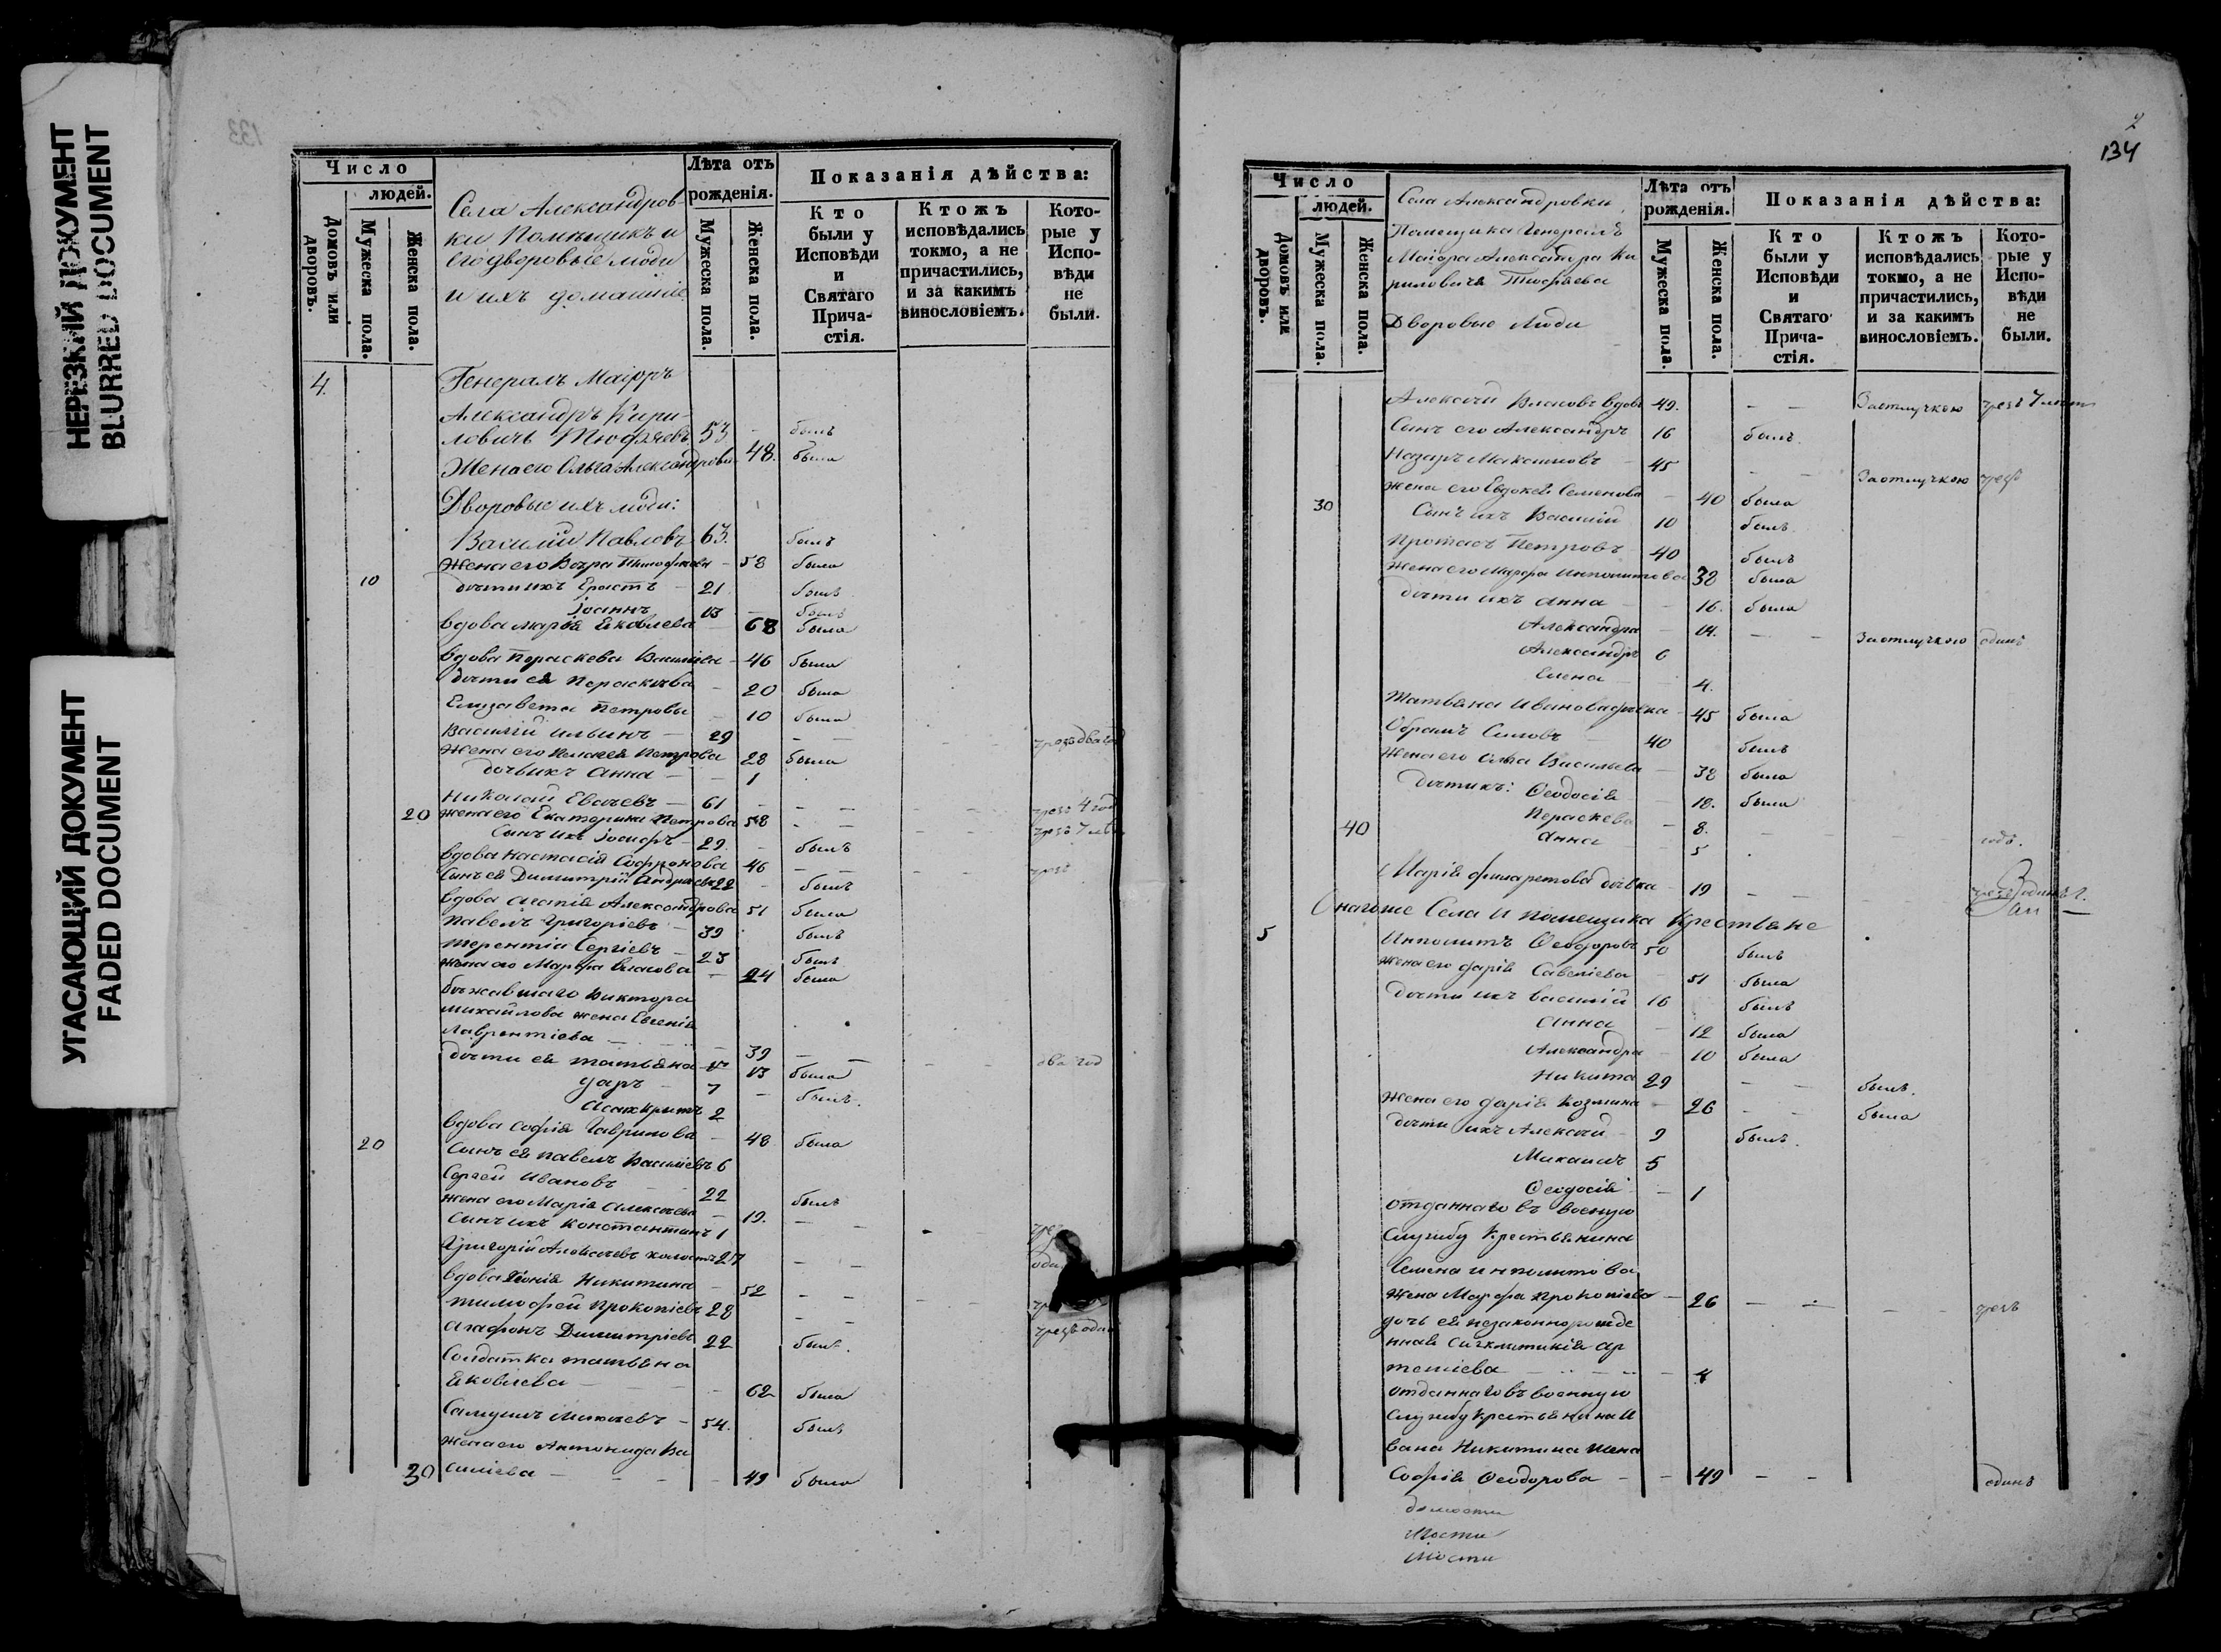 НЕРЕЗКИЙ ДОКУМЕНТ
BLURRED DOCUMENT
УГАСАЮЩИЙ ДОКУМЕНТ
FADED DOCUMENT
133
Число
людей.
Домовъ или дворовъ.
Мужеска пола.
Женска пола.
Села Александров-
ки Помѣщикъ и
его дворовые люди
и ихъ домашніе
Лѣта отъ рожденія.
Мужеска пола.
Женска пола.
Показанія дѣйства:
Кто были у Исповѣди и Святаго Прича-стія.
Ктожъ исповѣдались токмо, а не причастились, и за какимъ винословіемъ.
Кото-рые у Испо-вѣди не были.
4. Генералъ Маіоръ
Александръ Кири-
ловичь Тюфяевъ 53 - былъ
Жена его Ольга Александрова 48. была
Дворовые ихъ люди:
Василій Павловъ 63. былъ
Жена его Вѣра Тимофѣева - 58 была
10 дѣти ихъ Ерастъ - 21 былъ
Іоаннъ 13 - былъ
вдова Марія Яковлева - 68 была
вдова Параскева Василіева - 46 была
дѣти ея Параскева - 20 была
Елизавета Петровы - 10 была
Василій Ильинъ - 29 - - - - чрезъ два го
жена его Пелагея Петрова 28 была
дочь ихъ Анна - - 1
Николай Евсеевъ - 61 - - - - - чрезъ 4 год
20 жена его Екатерина Петрова 58 - - - - чрезъ 7 лѣ
Сынъ ихъ Іосифъ - 29. - былъ
вдова Настасія Софронова 46 - - - - чрезъ
Сынъ ея Димитрій Андреевъ 22 - былъ
вдова Агапія Александрова 51 была
Павелъ Григоріевъ - 39 былъ
Терентій Сергіевъ - 23 былъ
жена его Марфа Власова - 24 была
бѣжавшаго Виктора
Михайлова жена Евгенія
Лаврентіева - - 39 - - - - два год
дѣти ея Татьяна - 13 была
7 - былъ.
Асинкритъ 2
вдова Софія Гаврилова - 48 была
20 Сынъ ея Павелъ Василіевъ 6
Сергей Ивановъ - 22 былъ
жена его Марія Алексеева - 19. - - - чрез
Сынъ ихъ Константинъ 1
Григорій Алексеевъ холостъ 27 - - оди
вдова Никитина - 52 - - - -
Тимофей Прокопіевъ 28 - - чрезъ оди
Агафонъ Димитріевъ 22 былъ.
Солдатка Татьяна
Яковлева - - - 62 была
Самуилъ Михеевъ - 54. былъ
жена его Антонида Ва
30 силіева - - - - 49 была
2
134
Число
людей.
Домовъ или дворовъ.
Мужеска пола.
Женска пола.
Села Александровки
Помещика Генералъ
Маіора Александра Ки
риловича Тюфяева
Дворовые Люди
Лѣта отъ рожденія.
Мужеска пола.
Женска пола.
Показанія дѣйства:
Кто были у Исповѣди и Святаго Прича-стія.
Ктожъ исповѣдались токмо, а не причастились, и за какимъ винословіемъ.
Кото-рые у Испо-вѣди не были.
Алексей Власовъ вдовъ 49. - - За отлучкою чрезъ 7 лѣтъ
Сынъ его Александръ 16 былъ.
Назаръ Максимовъ - 45 - - За отлучкою чрез
жена его Евдокея Семенова - 40 была
30 Сынъ ихъ Василій 10 былъ.
Протасъ Петровъ 40 былъ
жена его Марфа Ипполитова 38 была
дѣти ихъ Анна - 16. была
Александра - 14. - - За отлучкою одинъ
Александръ 6
Елена - 4.
Татьяна Иванова дѣвка - 45 была
Силовъ - 40 былъ
жена его Ольга Васильева - 38 была
дѣти ихъ: Ѳеодосія - 18. была
Параскева - 8. - - - - годъ.
40 Анна - 5
Марія Филаретова дѣвка - 19 - - чрезъ одинъ г.
Онагоже Села и помещика Крестьяне
5 Ипполитъ Ѳеодоровъ 50 былъ
жена его Дарія Савеліева - 51 была
дѣти ихъ Василій 16 былъ
Анна - 12 была
Александра - 10 была
Никита 29 - - былъ.
жена его Дарія Козмина - 26 - - была
дѣти ихъ Алексей - 9 былъ.
Михаилъ 5
Ѳеодосія - 1
отданнаго въ военую
Службу Крестьянина
Семена Ипполитова
жена Марфа Прокопіева - 26 - - - - чрезъ
дочь ея незаконнорожде
нная Синклитикія Ар
теміева - - - 4
отданнаго въ военную
службу Крестьянина И
вана Никитина жена
Софія Ѳеодорова - - 49 - - одинъ